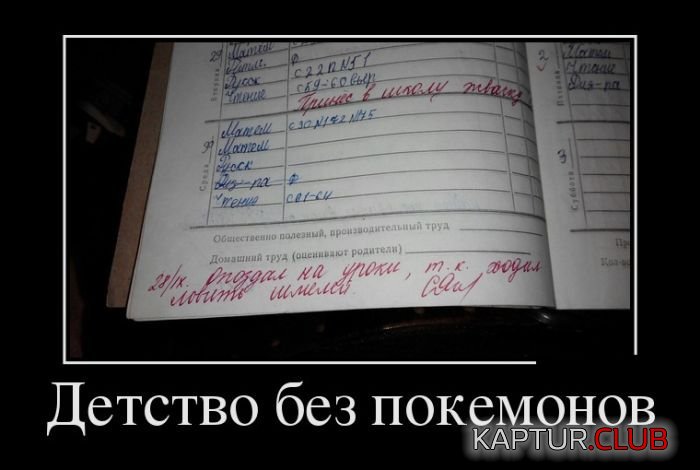 29
Вторник
Матем
Матем. Ф
Русск с 22 п N 51
Чтение с 59-60 выр
Принес в школу жвачку
30
Среда
Матем с 30 N 172 N 175
Матем
Русск
Физ-ра Ф
Чтение с 61-64
Общественно полезный, производительный труд
Домашний труд (оценивают родители)
28/IX. Опоздал на уроки, т.к. ходил
ловить шмелей.
2
Матем
Чтение
Физ-ра
3
Суббота
Детство без покемонов
KAPTUR.CLUB